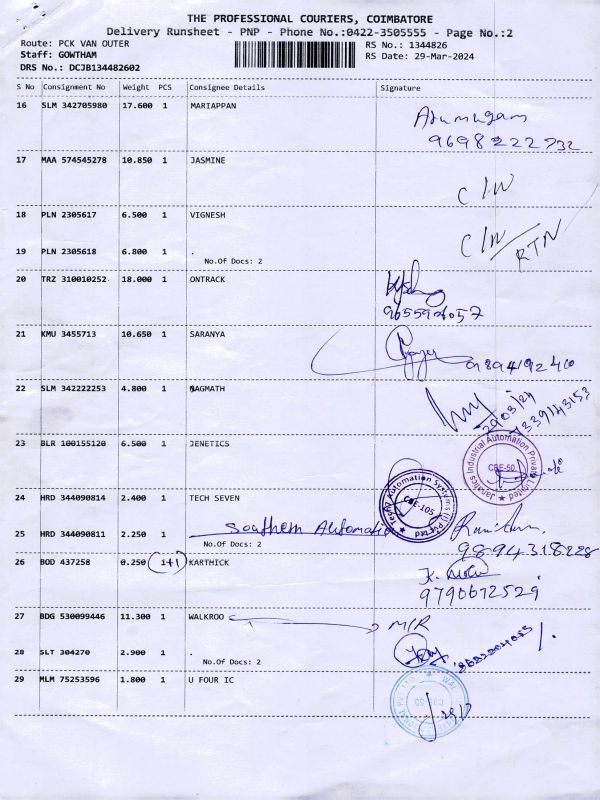 THE PROFESSIONAL COURIERS, COIMBATORE
Delivery Runsheet - PNP - Phone No.:0422-3505555 - Page No.:2
Route: PCK VAN OUTER
RS No.: 1344826
Staff: GOWTHAM
RS Date: 29-Mar-2024
DRS No.: DCJB134482602
S No Consignment No Weight PCS Consignee Details Signature
16 SLM 342705980 17.600 1 MARIAPPAN
Arumugam
9698222732
17 MAA 574545278 10.850 1 JASMINE
C/N
18 PLN 2305617 6.500 1 VIGNESH
C/N RTN
19 PLN 2305618 6.800 1 .
No.Of Docs: 2
20 TRZ 310010252 18.000 1 ONTRACK
21 KMU 3455713 10.650 1 SARANYA
9894192440
22 SLM 342222253 4.800 1 NAGMATH
29/03/24
7339143153
23 BLR 100155120 6.500 1 JENETICS
Janatics Industrial Automation Private Limited
CBE-50
24 HRD 344090814 2.400 1 TECH SEVEN
CBE-105
25 HRD 344090811 2.250 1 Southern Automatic
No.Of Docs: 2
9894318228
26 BOD 437258 0.250 1+1 KARTHICK
9790672529
27 BDG 530099446 11.300 1 WALKROO
M/R
28 SLT 304270 2.900 1 .
No.Of Docs: 2
29 MLM 75253596 1.800 1 U FOUR IC